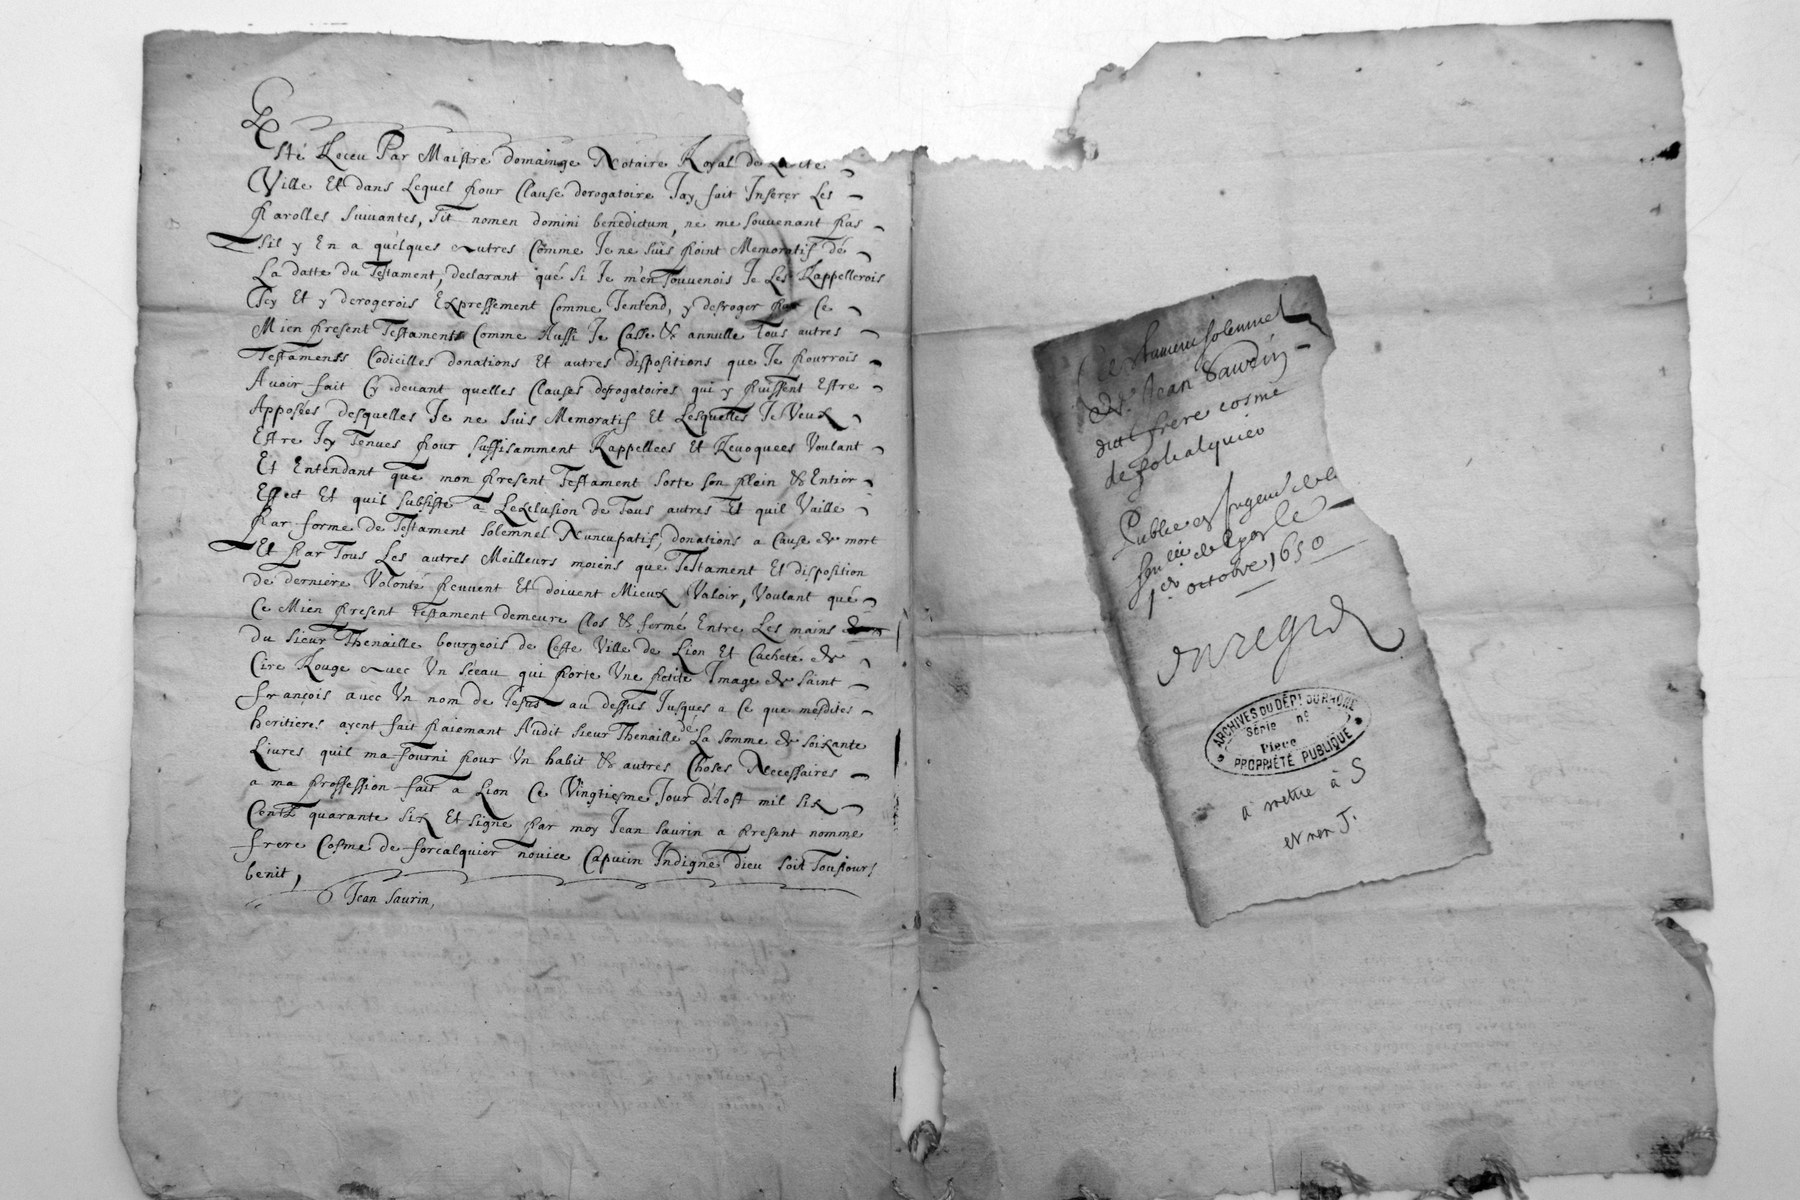 Esté Receu Par Maistre domainge Notaire Royal de
Ville Et dans Lequel Pour Clause derogatoire Jay fait Inserer Les
Parolles suivantes, sit nomen domini benedictum, ne me souvenant Pas
sil y En a quelques autres Comme Je ne suis Point Memoratif de
La datte du Testament, declarant que si Je m'en souvenois Je Les Rappellerois
Icy Et y derogerois Expressement Comme Jentend, y desroger Par Ce
Mien Present Testament Comme Aussi Je Casse & annulle Tous autres
Testaments Codicilles donations Et autres dispositions que Je Pourrois
Avoir fait Cy devant quelles Clauses desrogatoires qui y Puissent Estre
Apposées desquelles Je ne suis Memoratif Et Lesquelles Je Veux
Estre Icy Tenues Pour suffisamment Rappellees Et Revoquees Voulant
Et Entendant que mon Present Testament sorte son Plein & Entier
Effect Et quil subsiste a Lexclusion de Tous autres Et quil Vaille
Par forme de Testament solemnel Nuncupatif, donations a Cause de mort
Et Par Tous Les autres Meilleurs moiens que Testament Et disposition
de derniere Volonté Peuvent Et doivent Mieux Valoir, Voulant que
Ce Mien Present Testament demeure Clos & fermé Entre Les mains
du sieur Thenaille bourgeois de Ceste Ville de Lion Et Cacheté de
Cire Rouge avec Un sceau qui Porte Une Petite Image de saint
françois avec Un nom de Jesus au dessus Jusques a Ce que mesdites
heritieres ayent fait Paiemant Audit sieur Thenaille de La somme de soixante
Livres quil ma fourni Pour Un habit & autres Choses Necessaires
a ma Proffession fait a Lion Ce Vingtiesme Jour d'Aost mil six
Centz quarante six Et signe Par moy Jean Saurin a Present nomme
frere Cosme de forcalquier novice Capucin Indigne Dieu soit Tousiours
benit,
Jean Saurin,
solemnel
Jean Saurin
dict frere cosme
de folcalquier
Publié en Jugement de la
de Lyon le
1er octobre 1650
enregré
ARCHIVES DU DÉPt DU RHÔNE
Série n°
Pièce
PROPRIÉTÉ PUBLIQUE
a mettre à S
et non J.